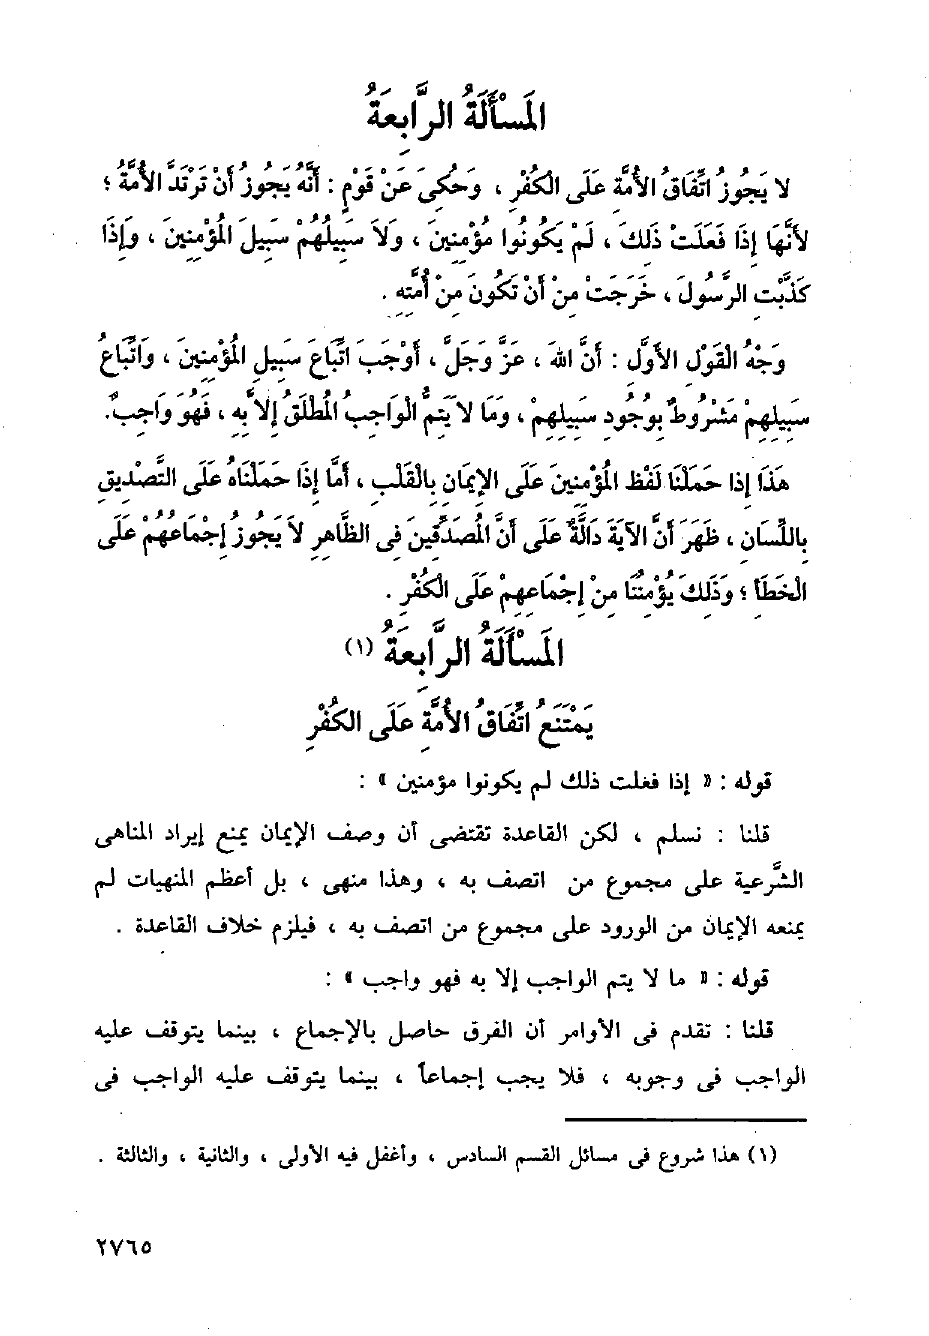 المَسْأَلَةُ الرَّابِعَةُ
لا يَجُوزُ اتِّفَاقُ الأُمَّةِ عَلَى الكُفْرِ ، وَحُكِىَ عَنْ قَوْمٍ : أَنَّهُ يَجُوزُ أَنْ تَرْتَدَّ الأُمَّةُ ؛
لأَنَّهَا إِذَا فَعَلَتْ ذَلِكَ ، لَمْ يَكُونُوا مُؤْمِنِينَ ، وَلاَ سَبِيلُهُمْ سَبِيلَ المُؤْمِنِينَ ، وَإِذَا
كَذَّبَتِ الرَّسُولَ ، خَرَجَتْ مِنْ أَنْ تَكُونَ مِنْ أُمَّتِهِ .
وَجْهُ القَوْلِ الأَوَّلِ : أَنَّ اللهَ ، عَزَّ وَجَلَّ ، أَوْجَبَ اتِّبَاعَ سَبِيلِ المُؤْمِنِينَ ، وَاتِّبَاعُ
سَبِيلِهِمْ مَشْرُوطٌ بِوُجُودِ سَبِيلِهِمْ ، وَمَا لاَ يَتِمُّ الوَاجِبُ المُطْلَقُ إِلاَّ بِهِ ، فَهُوَ وَاجِبٌ.
هَذَا إِذَا حَمَلْنَا لَفْظَ المُؤْمِنِينَ عَلَى الإِيمَانِ بِالقَلْبِ ، أَمَّا إِذَا حَمَلْنَاهُ عَلَى التَّصْدِيقِ
بِاللِّسَانِ ، ظَهَرَ أَنَّ الآيَةَ دَالَّةٌ عَلَى أَنَّ المُصَدِّقِينَ فِى الظَّاهِرِ لاَ يَجُوزُ إِجْمَاعُهُمْ عَلَى
الخَطَأ ؛ وَذَلِكَ يُؤْمِنُنَا مِنْ إِجْمَاعِهِمْ عَلَى الكُفْرِ .
المَسْأَلَةُ الرَّابِعَةُ (١)
يَمْتَنِعُ اتِّفَاقُ الأُمَّةِ عَلَى الكُفْرِ
قوله : « إذا فعلت ذلك لم يكونوا مؤمنين » :
قلنا : نسلم ، لكن القاعدة تقتضى أن وصف الإيمان يمنع إيراد المناهى
الشَّرعية على مجموع من اتصف به ، وهذا منهى ، بل أعظم المنهيات لم
يمنعه الإيمان من الورود على مجموع من اتصف به ، فيلزم خلاف القاعدة .
قوله : « ما لا يتم الواجب إلا به فهو واجب » :
قلنا : تقدم فى الأوامر أن الفرق حاصل بالإجماع ، بينما يتوقف عليه
الواجب فى وجوبه ، فلا يجب إجماعاً ، بينما يتوقف عليه الواجب فى
(١) هذا شروع فى مسائل القسم السادس ، وأغفل فيه الأولى ، والثانية ، والثالثة .
٢٧٦٥